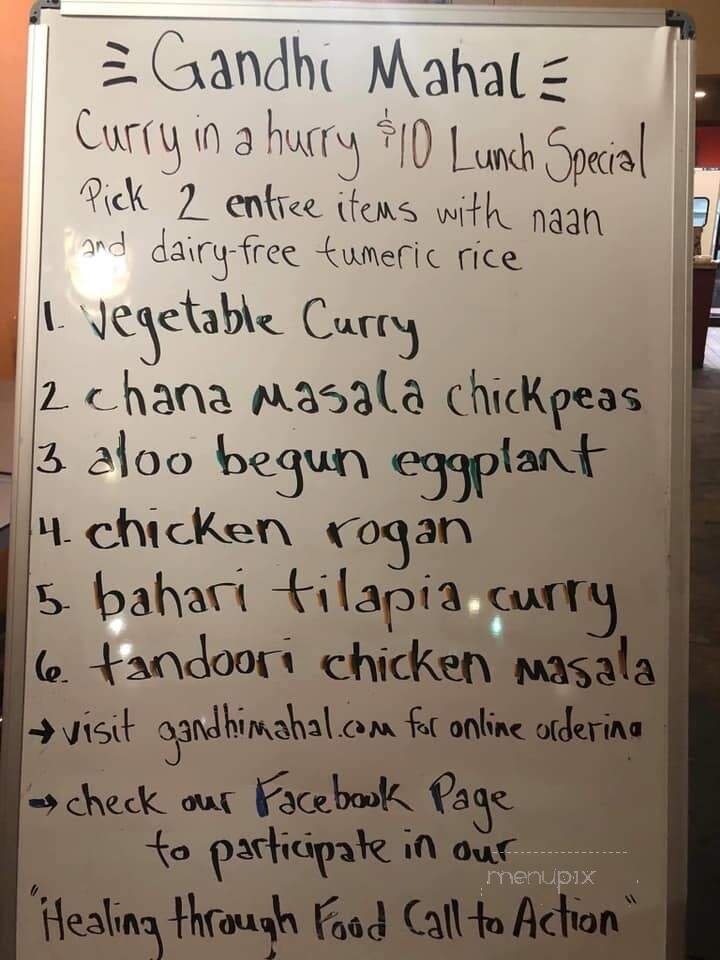 Gandhi Mahal
Curry in a hurry $10 Lunch Special
Pick 2 entree items with naan
and dairy-free tumeric rice
1. vegetable Curry
2 chana masala chickpeas
3. aloo begun eggplant
4. chicken rogan
5. bahari tilapia curry
6. tandoori chicken masala
→ visit gandhimahal.com for online ordering
→ check our Facebook Page
to participate in our
menupix
"Healing through Food Call to Action"